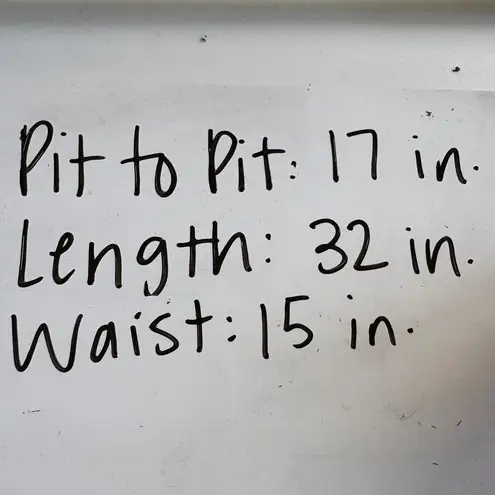 Pit to Pit: 17 in.
Length: 32 in.
Waist: 15 in.